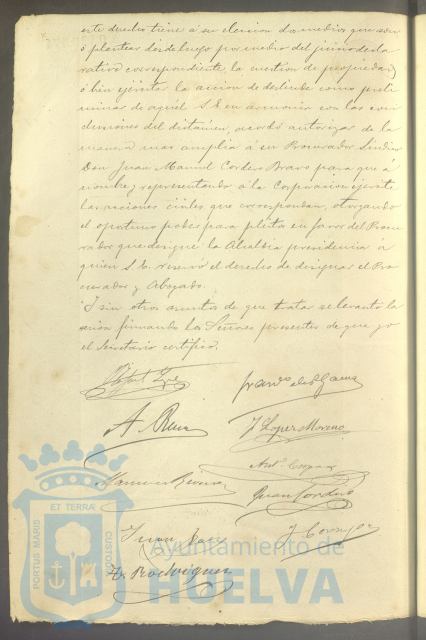 este derecho tiene á su eleccion dos medios que son
ó plantear desde luego por medio del juicio decla
rativo correspondiente, la cuestion de propiedad,
ó bien ejercitar la accion de deslinde como preli
minar de aquel S.E. en armonia con las con
clusiones del dictámen, acordó autorizar de la
manera mas amplia á su Procurador Síndico
Don Juan Manuel Cordero Bravo para que á
nombre y representando á la Corporacion ejercite
las acciones civiles que correspondan, otorgando
el oportuno poder para pleitos en favor del Procu
rador que designe la Alcaldia presidencia á
quien S.E. reservó el derecho de designar el Pro
curador y Abogado.
Y sin otros asuntos de que tratar se levantó la
sesion firmando los Señores presentes de que yo
el Secretario certifico.
J. Lopez Moreno
Juan Cordero
Rodriguez
PORTUS MARIS ET TERRAE CUSTODIA
Ayuntamiento de
HUELVA